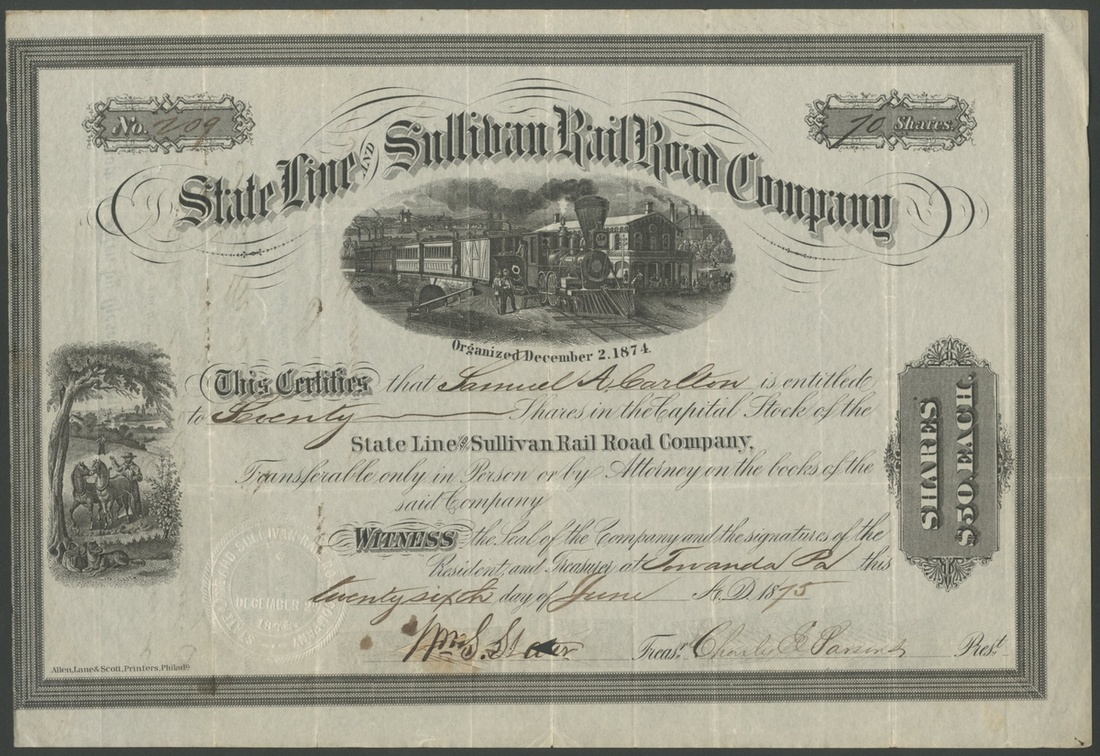 No. 209
70 Shares.
State Line AND Sullivan Rail Road Company
Organized December 2. 1874.
This Certifies that Samuel A. Carlton is entitled
to Seventy Shares in the Capital Stock of the
State Line and Sullivan Rail Road Company,
Transferable only in Person or by Attorney on the books of the
said Company
WITNESS the Seal of the Company and the signatures of the
President, and Treasurer at Towanda Pa this
twenty sixth day of June A.D. 1875
Wm. S. Treasr. Charles E Parsons Prest.
SHARES
$50. EACH.
DECEMBER 2
Allen, Lane & Scott, Printers, Philada.